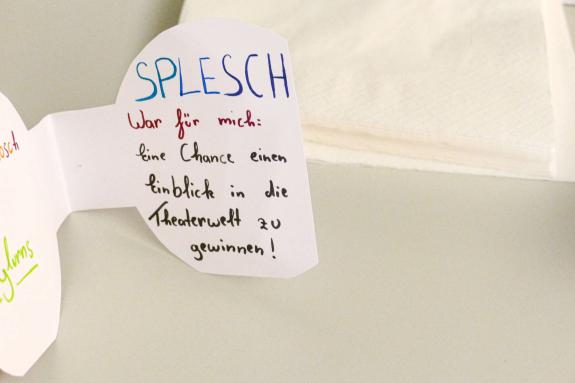 SPLESCH
War für mich:
Eine Chance einen
Einblick in die
Theaterwelt zu
gewinnen!